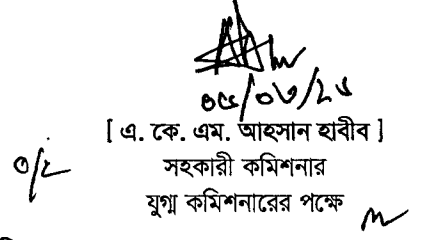 [ এ. কে. এম. আহসান হাবীব ]
সহকারী কমিশনার
যুগ্ম কমিশনারের পক্ষে